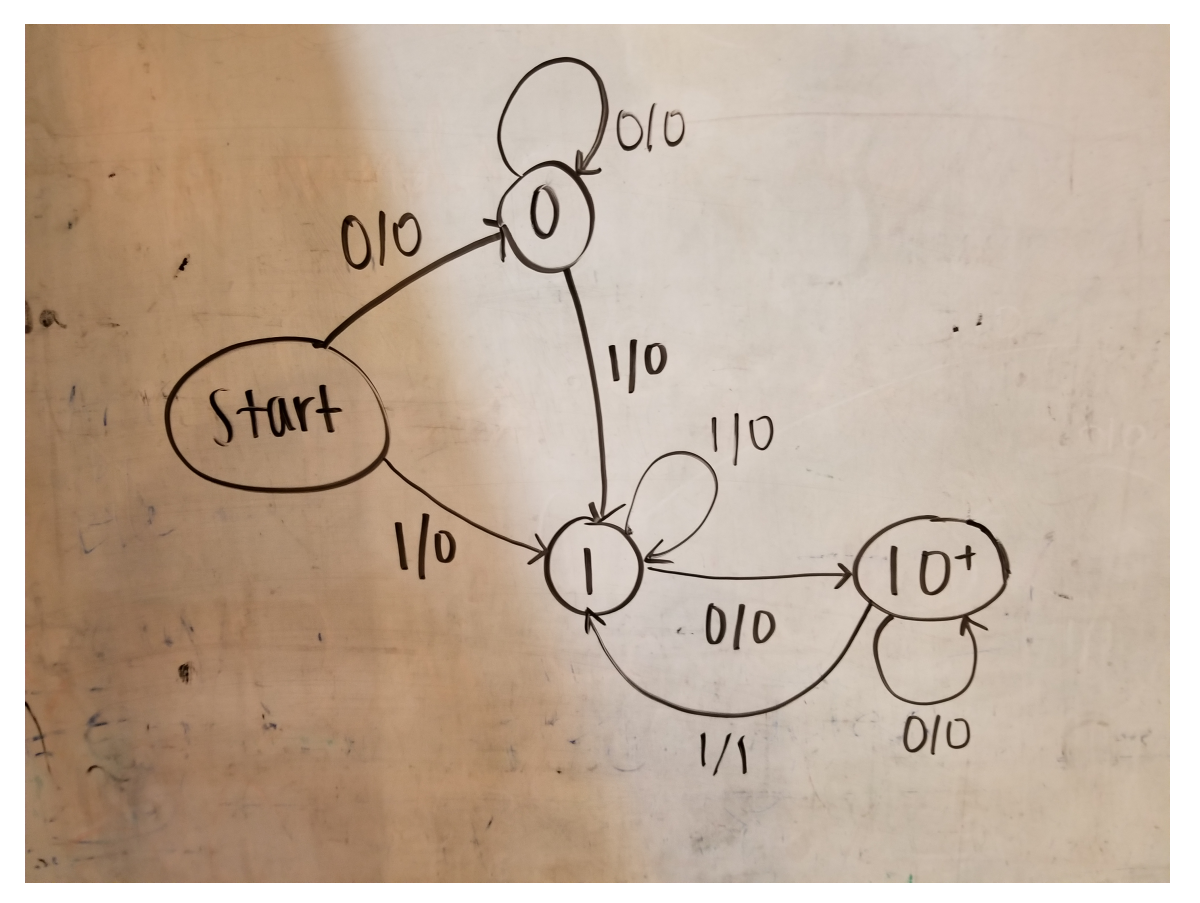 0/0
0
0/0
1/0
Start
1/0
1/0
1
10⁺
0/0
1/1
0/0